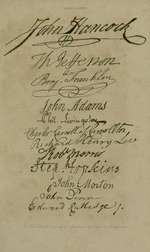 John Hancock
Th Jefferson
Benj. Franklin
John Adams
Livingston
Charles Carroll of Carrollton
Richard Henry Lee
Robt Morris
Step. Hopkins
John Morton
John Penn
Edward Rutledge